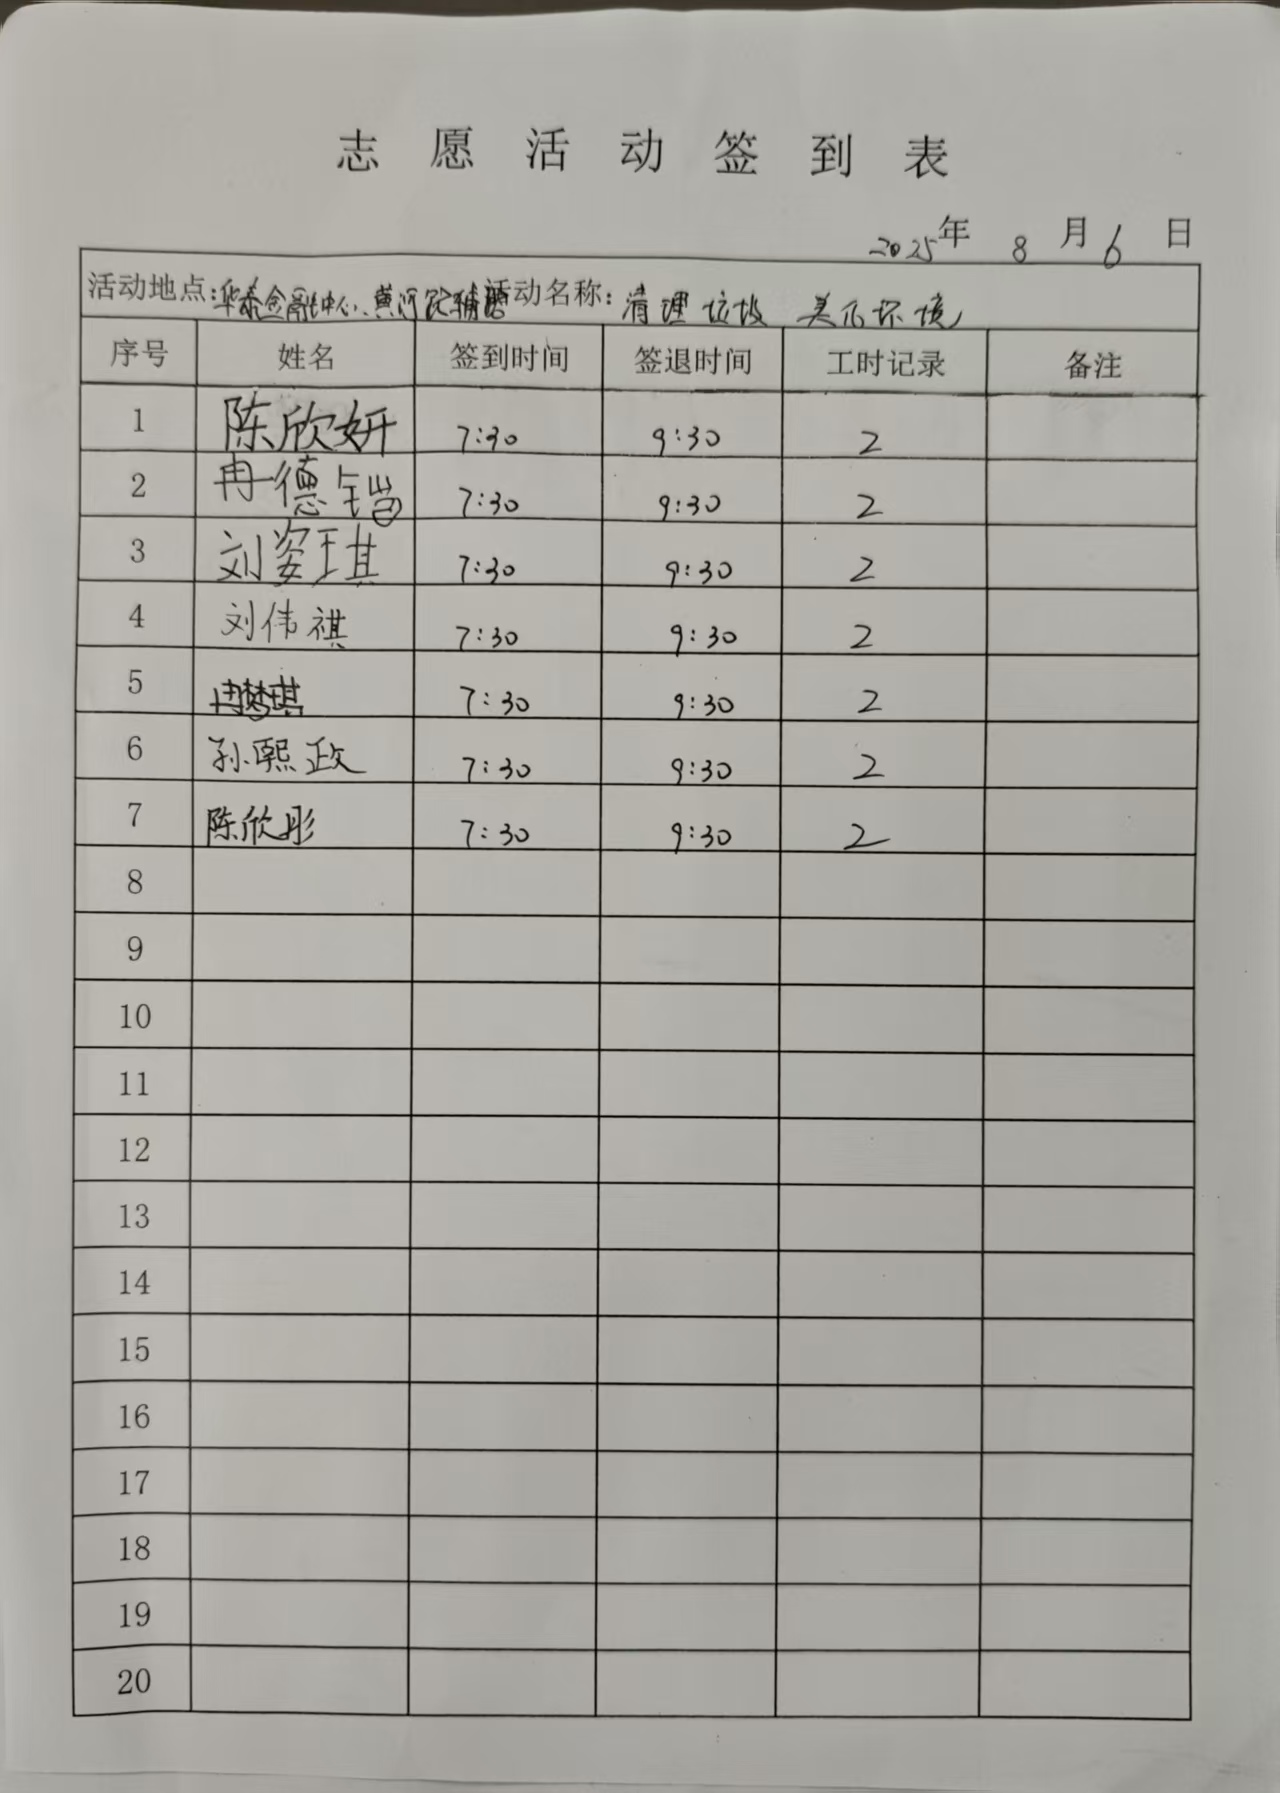 志愿活动签到表
2025年 8月6日
活动地点:华泰金融中心、黄河路辅路 活动名称:清理垃圾 美化环境
序号 姓名 签到时间 签退时间 工时记录 备注
1 陈欣妍 7:30 9:30 2
2 冉德铠 7:30 9:30 2
3 刘姿琪 7:30 9:30 2
4 刘伟祺 7:30 9:30 2
5 冉梦琪 7:30 9:30 2
6 孙熙政 7:30 9:30 2
7 陈欣彤 7:30 9:30 2
8
9
10
11
12
13
14
15
16
17
18
19
20